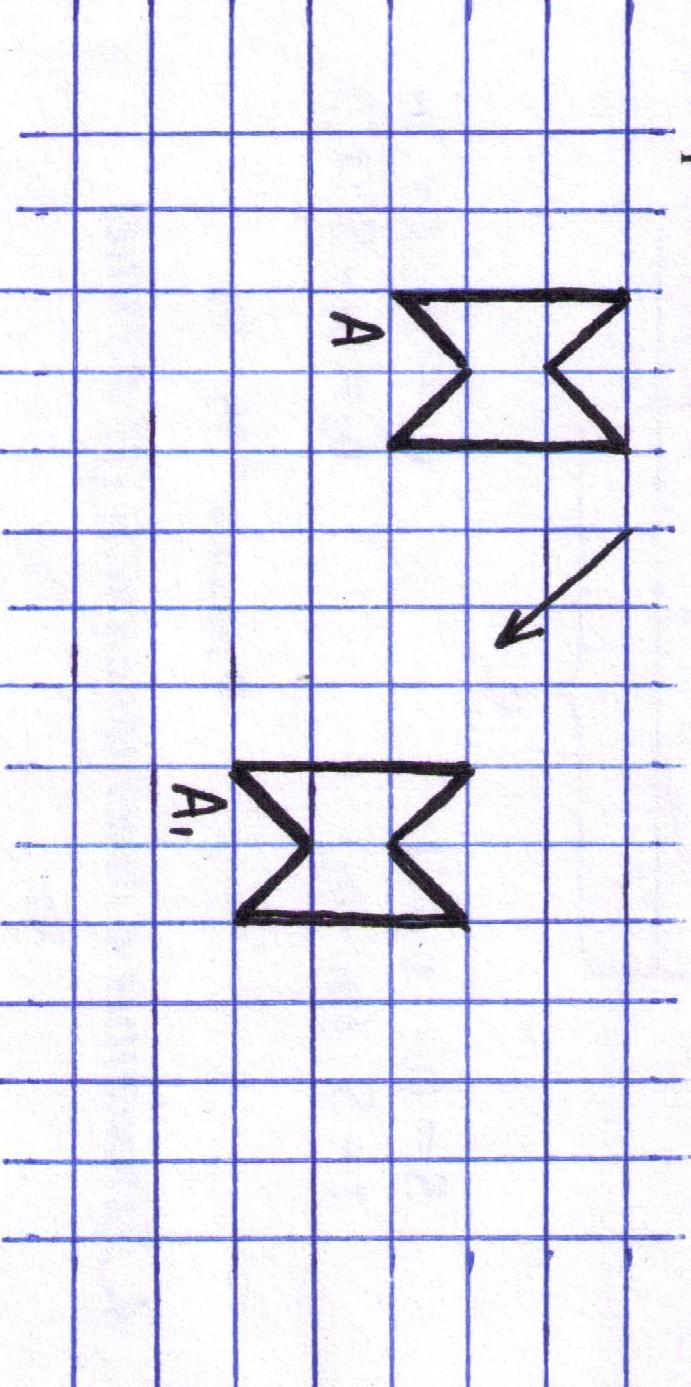 A
A₁